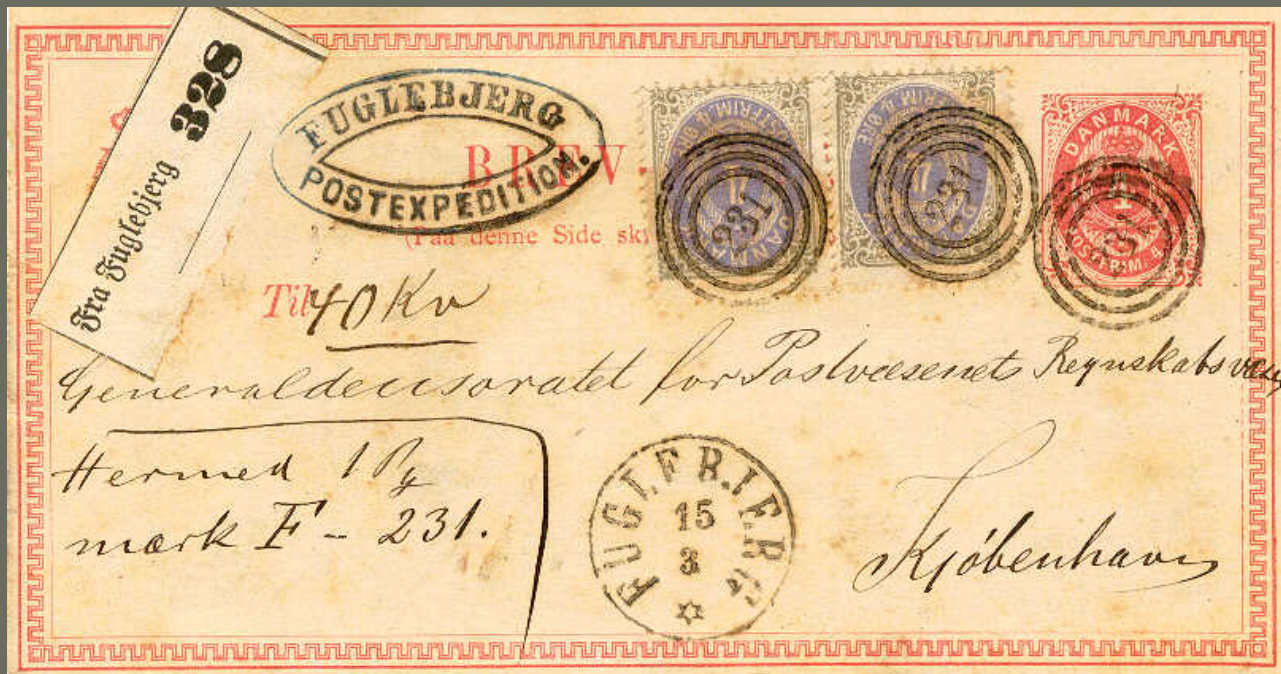 Fra Fuglebjerg 328
FUGLEBJERG
POSTEXPEDITION.
BREV
(Paa denne Side
DANMARK
POSTFRIM. 4
231
231
231
Til 40 Kv
Generaldecisoratet for Postvæsenets Regnskabsvæs
Hermed 1 Pg
mærk F - 231.
FUGLEBJERG
15
3
Kjøbenhavn